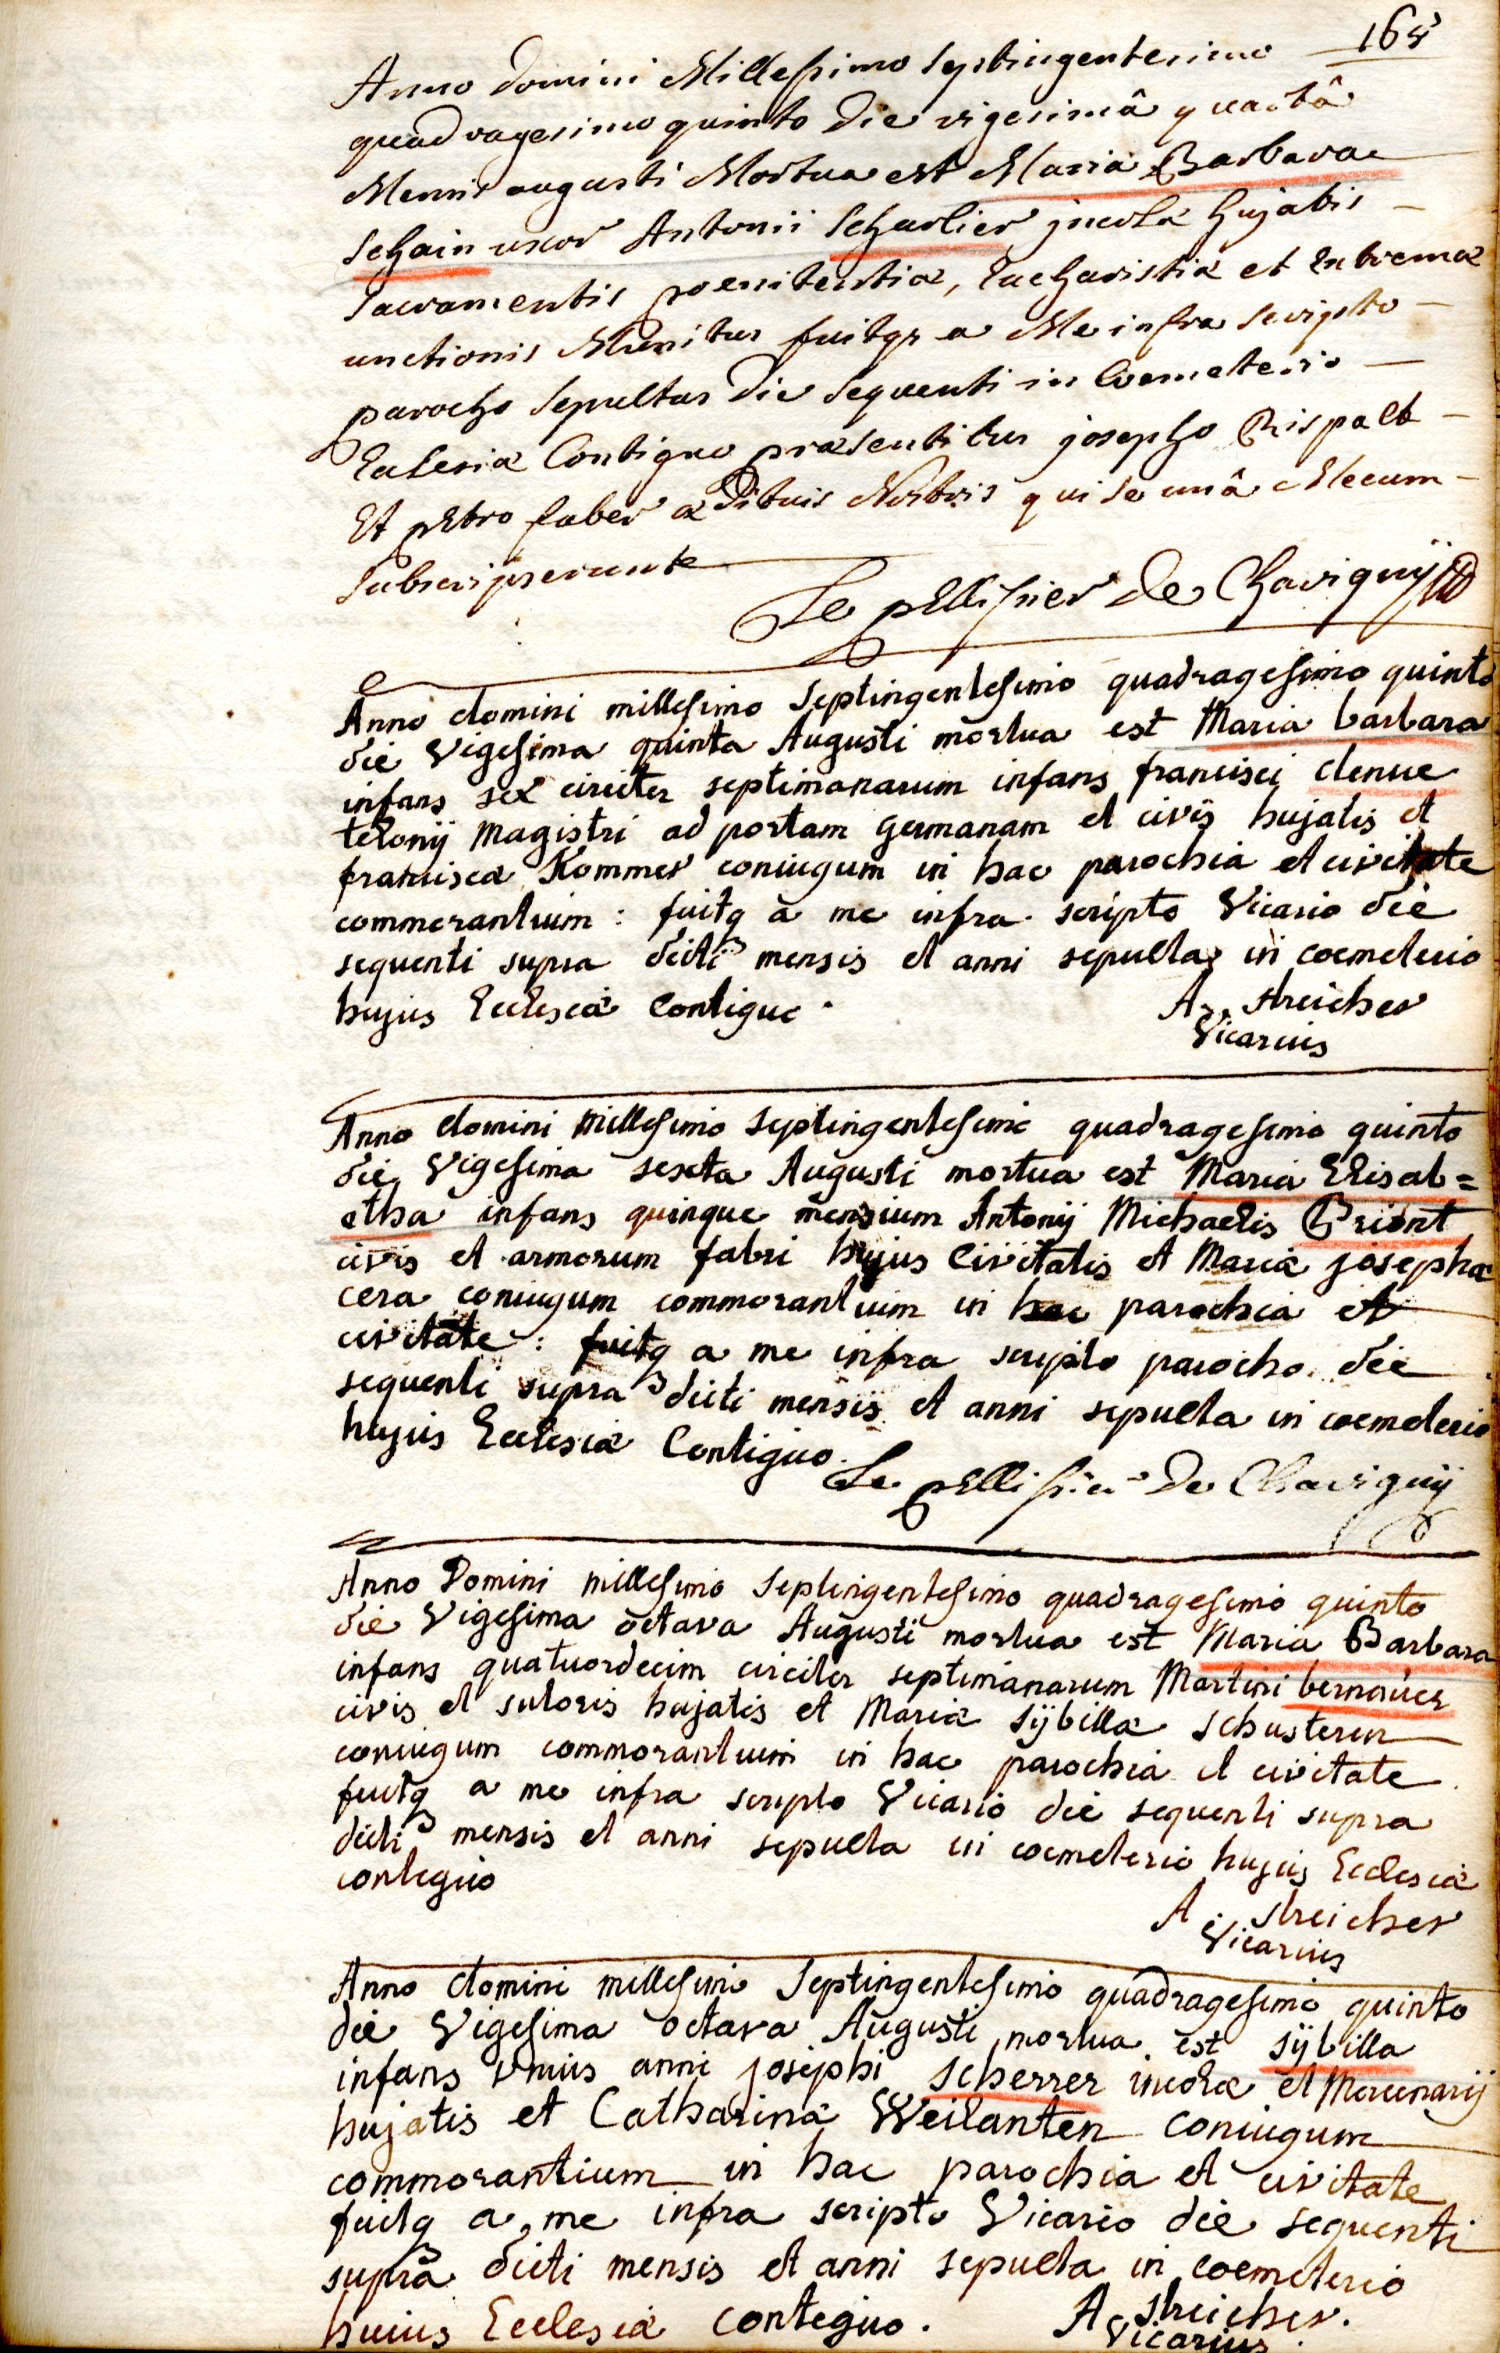 165
Anno domini Millesimo Septingentesimo
quadragesimo quinto die vigesimâ quartâ
Mensis augusti Mortua est Maria Barbara
schain uxor Antonii scharlier jncolæ hujatis
sacramentis poenitentiæ, Eucharistiæ et Extremæ
unctionis Munitus fuitqz a Me infra scripto
parocho sepultus die sequenti in Coemeterio
Ecclesiæ Contiguo præsentibus josepho Rispalt
Et pEtro faber ædituis Nostris qui se unâ Mecum
subscripserunt
Le pEllissier de Chavignÿ
Anno domini millesimo Septingentesimo quadragesimo quinto
die Vigesima quinta Augusti mortua est Maria barbara
infans sex circiter septimanarum infans francisci denue
telonij Magistri ad portam germanam et civis hujatis et
franciscæ Kommer coniugum in hac parochia et civitate
commorantium : fuitq à me infra scripto Vicario die
sequenti supra dicti mensis et anni sepulta in coemeterio
hujus Ecclesiæ Contiguo .
A. streicher
Vicarius
Anno domini Millesimo septingentesimo quadragesimo quinto
die Vigesima sexta Augusti mortua est Maria Elisab=
etha infans quinque mensium Antonij Michaelis Briont
civis et armorum fabri hujus Civitatis et Mariæ josephæ
cera coniugum commorantium in hac parochia et
civitate : fuitq a me infra scripto parocho die
sequenti supra dicti mensis et anni sepulta in coemeterio
hujus Ecclesiæ Contiguo.
Le pEllissier De Chavignÿ
Anno Domini millesimo Septingentesimo quadragesimo quinto
die Vigesima octava Augusti mortua est Maria Barbara
infans quatuordecim circiter septimanarum Martini bernauer
civis et sutoris hujatis et Mariæ sÿbillæ schusterin
coniugum commorantium in hac parochia et civitate
fuitq a me infra scripto Vicario die sequenti supra
dicti mensis et anni sepulta in coemeterio hujus Ecclesiæ
contiguo
A. streicher
Vicarius
Anno domini millesimo Septingentesimo quadragesimo quinto
die Vigesima octava Augusti mortua est sÿbilla
infans Vnius anni josephi scherrer incolæ et Mercenarij
hujatis et Catharinæ Weilanten coniugum
commorantium in hac parochia et civitate
fuitq a me infra scripto Vicario die sequenti
supra dicti mensis et anni sepulta in coemeterio
huius Ecclesiæ contiguo .
A streicher.
Vicarius.